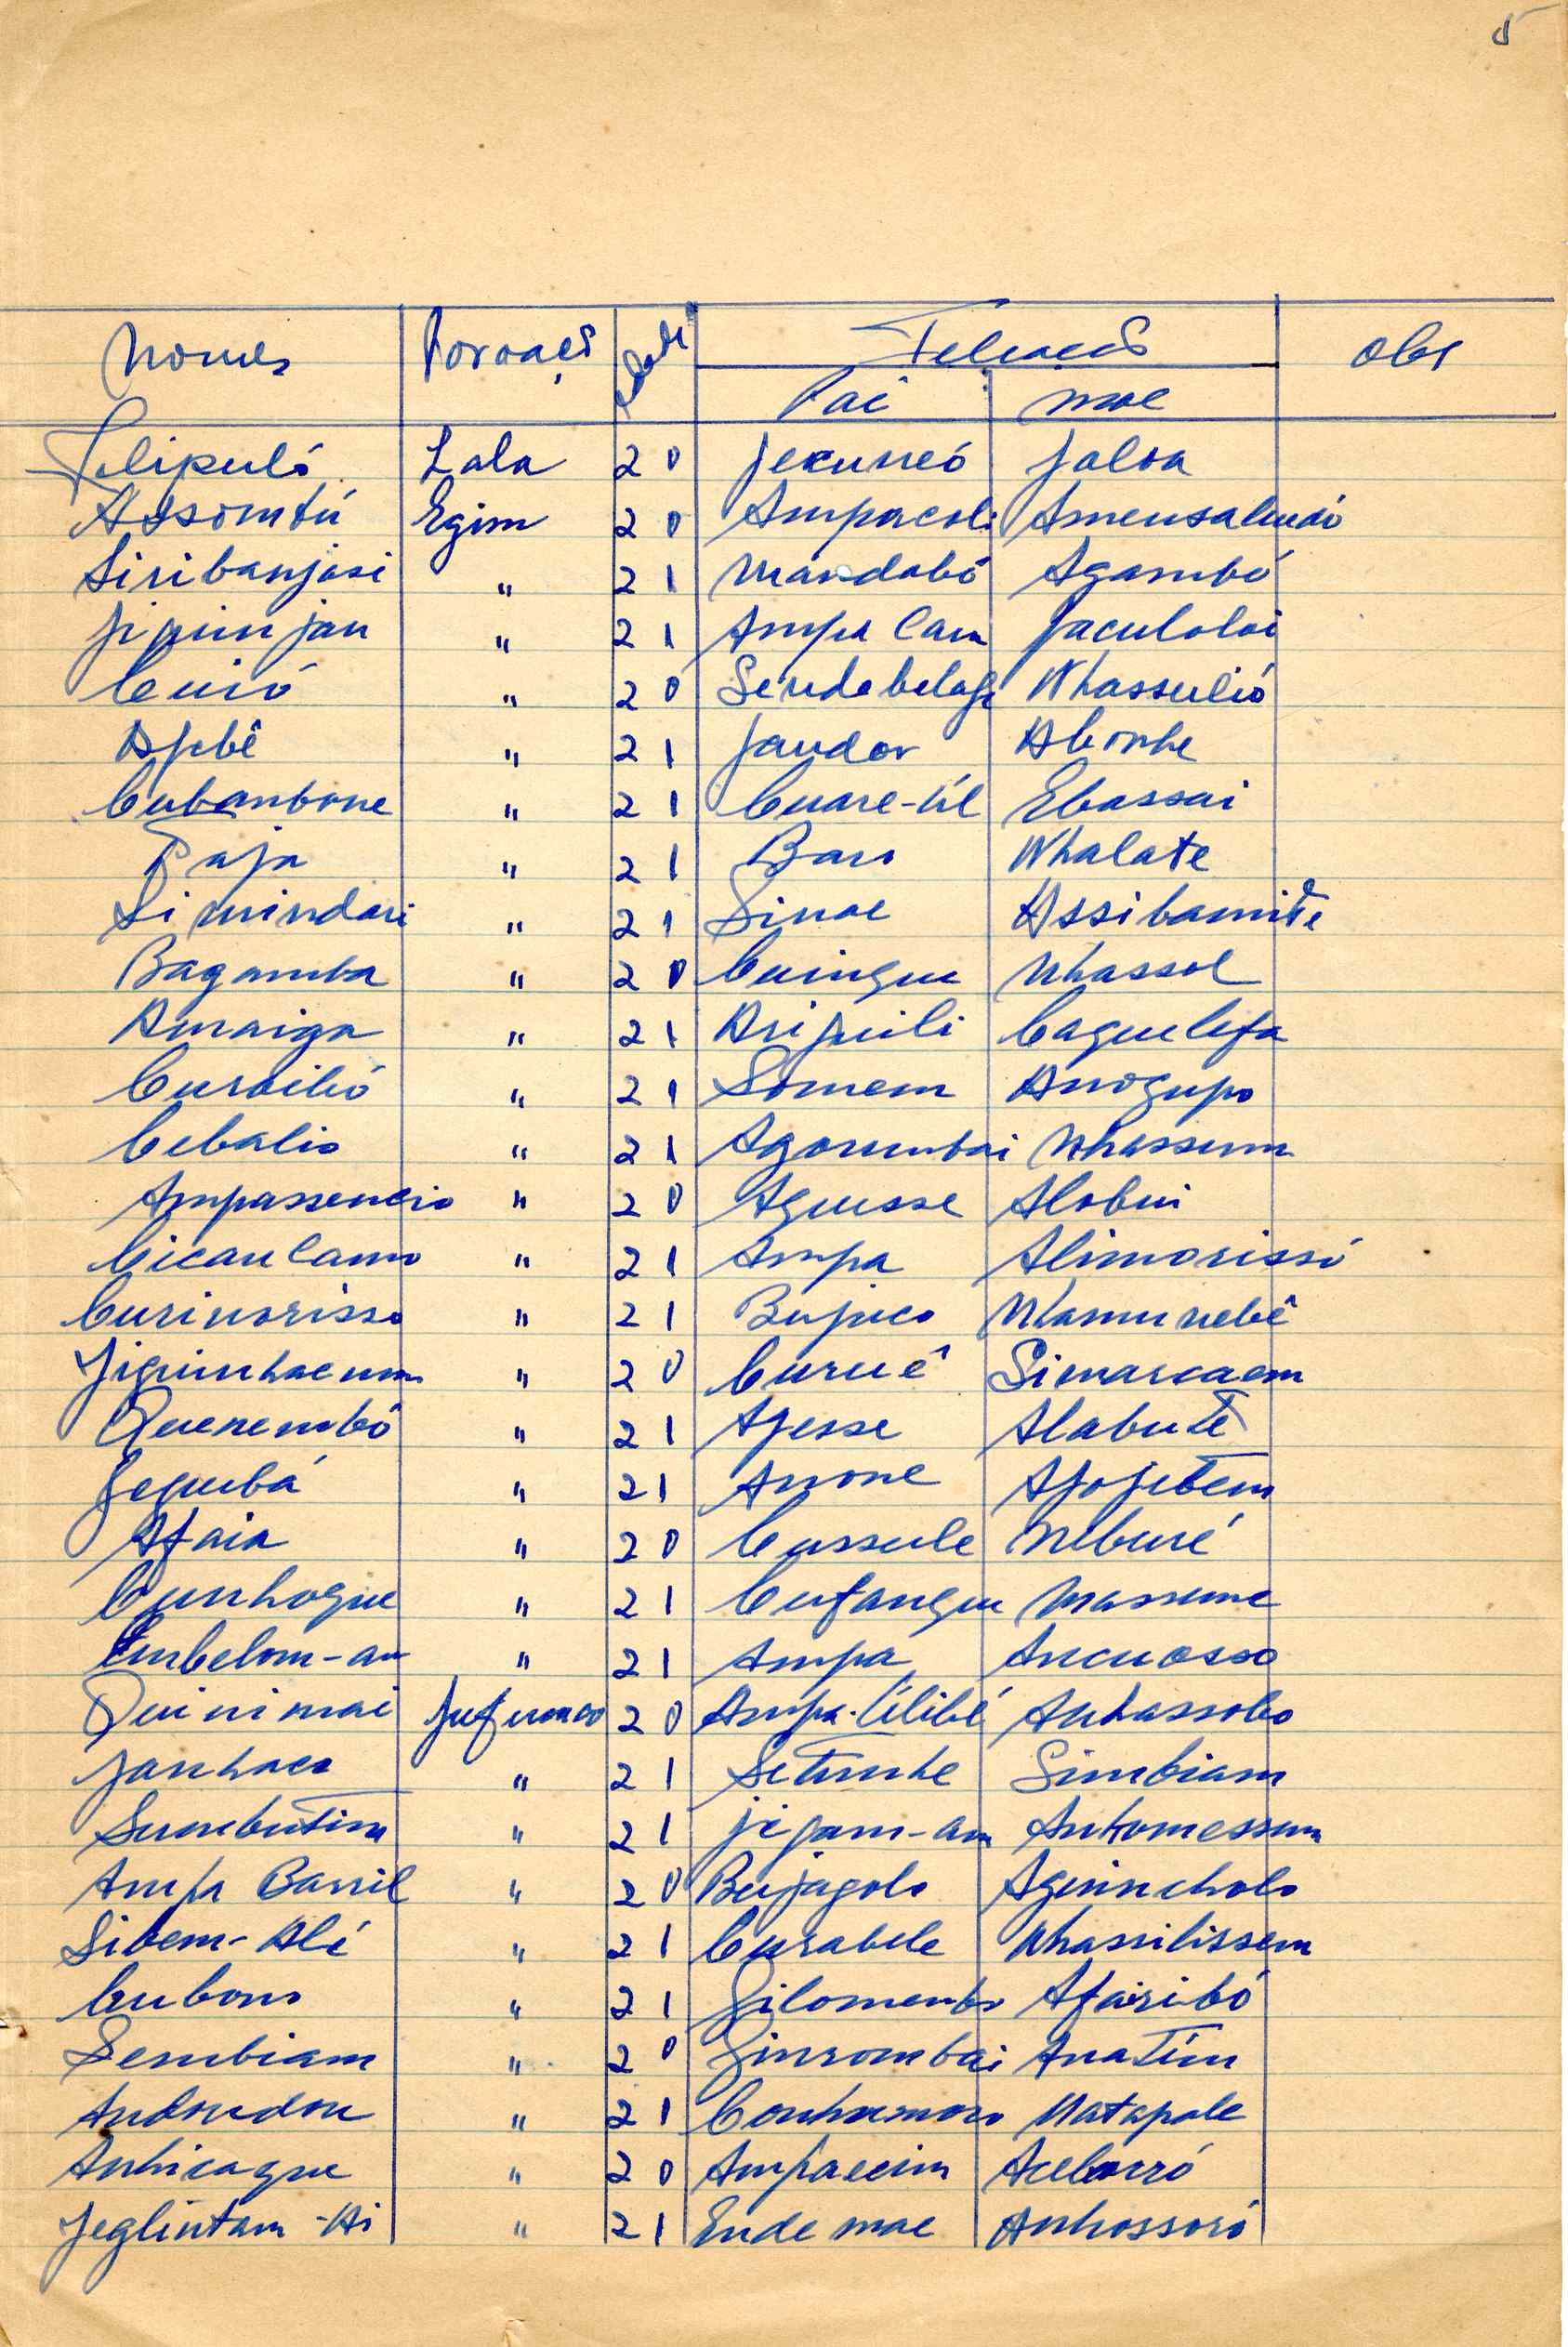 5
Nomes Povoação Idade Filiação Obs
Pai mãe
Felipuló Lala 20 Jecuneó Jaloa
Assomtú Egim 20 Ampacoli Amensaludó
Siribanjasi " 21 Mandabó Agambó
Jipiim jau " 21 Ampa Cam Jaculoloi
Cuió " 20 Nhassulió
Ajebê " 21 Jandor Abonhe
Cubanbone " 21 Cuare-úl Ebassai
Paja " 21 Baro Nhalate
Simindari " 21 Sinae Assibamite
Bagamba " 20 Cuingue Nhassol
Amaiga " 21 Aripili Caguelefa
Curailió " 21 Somem Anogupo
Cebalio " 21 Agorumbai Nhassum
Ampassencio " 20 Agusse Alobui
Cicau Camo " 21 Ampa Alimorissó
Curinorisso " 21 Bupico Nhamunebê
Jiguinhacum " 20 Curuê Simarcaem
Quenembó " 21 Ajesse Alabute
Jegubá " 21 Anone Ajojetem
Afaia " 20 Cussule Neburé
Cunhogue " 21 Cufangue Massume
Cumbelom-an " 21 Ampa Ancuosso
Quinimai 20 Ampa-Úlibé Anhassobo
Janhaco " 21 Setunhe Simbiam
Sumbutim " 21 Jipam-am Antomessum
Ampa Barril " 20 Bujagolo Aguincholo
Sibem-Alé " 21 Curabele Nhassilissem
Cubono " 21 Jilomento Afairibó
Sembiam " 20 Jinrombai Anatim
Andondon " 21 Conhumoro Natapale
Anhicague " 20 Ampaecim Acebocró
Jeglintam-Ai " 21 Ende mae Anhossoró